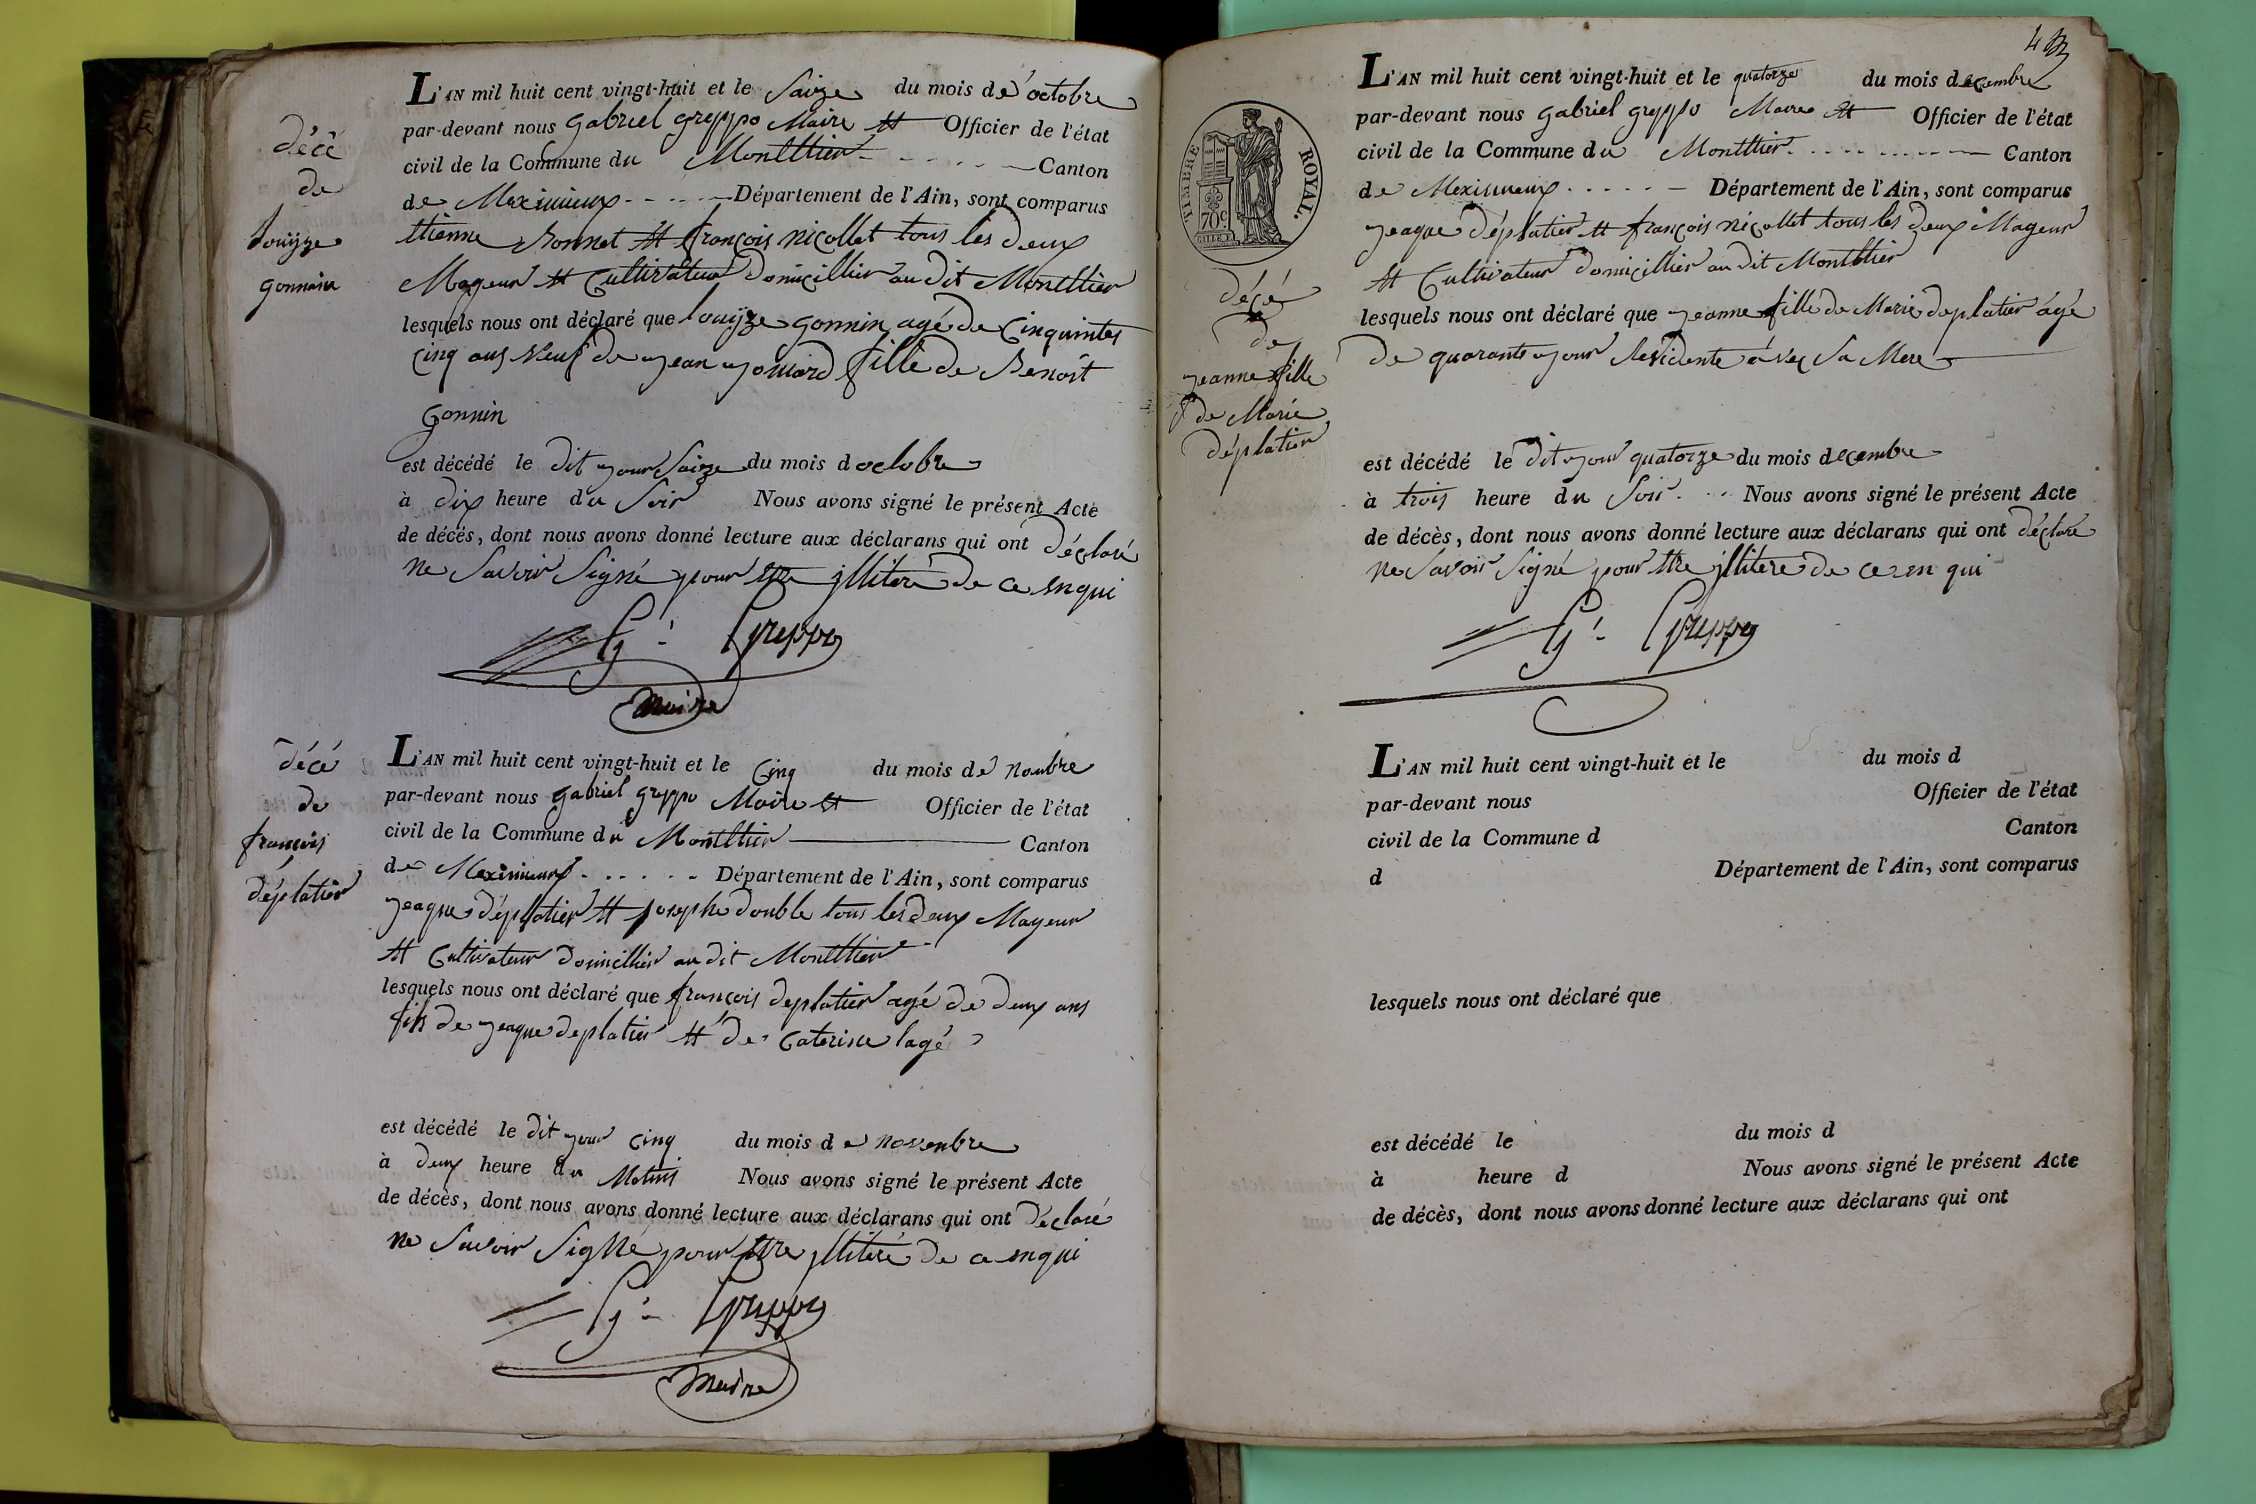 L'AN mil huit cent vingt-huit et le Saize du mois de octobre
par-devant nous gabriel greppo Maire et Officier de l'état
civil de la Commune du Montllier Canton
de Meximieux Département de l'Ain, sont comparus
ettienne Bonnet et françois nicollet tous les deux
Mageur et Cultivateur domicillier au dit Montllier
lesquels nous ont déclaré que louijze gonnin agé de Cinquintes
cinq ans veuf de jean jomard fille de Benoit
gonnin
est décédé le dit jour Saize du mois d octobre
à dix heure du Soir Nous avons signé le présent Acte
de décès, dont nous avons donné lecture aux déclarans qui ont déclaré
ne Savoir Signé pour ettre jlliteré de ce enqui
G. Greppo
Maire
décé
de
louijze
gonnin
L'AN mil huit cent vingt-huit et le Cinq du mois de nombre
par-devant nous gabriel greppo Maire et Officier de l'état
civil de la Commune du Montllier Canton
de Meximieux Département de l'Ain, sont comparus
jeaque déplatier et joseph double tous les deux Mageur
et Cultivateur domicillier au dit Montllier
lesquels nous ont déclaré que françois deplatier agé de deux ans
fils de jeaque deplatier et de Caterine lagé
est décédé le dit jour cinq du mois de novenbre
à deux heure du Matins Nous avons signé le présent Acte
de décès, dont nous avons donné lecture aux déclarans qui ont déclaré
ne Savoir Signé pour ettre jlliteré de ce enqui
G. Greppo
Maire
décé
de
françois
déplatier
L'AN mil huit cent vingt-huit et le quatorze du mois decembre
par-devant nous gabriel greppo Maire et Officier de l'état
civil de la Commune du Montllier Canton
de Meximieux Département de l'Ain, sont comparus
jeaque déplatier et françois nicollet tous les deux Mageur
et Cultivateur domicillier au dit Montllier
lesquels nous ont déclaré que jeanne fille de Marie deplatier agé
de quarante jour Residente avec Sa Mere
est décédé le dit jour quatorze du mois decembre
à trois heure du Soir Nous avons signé le présent Acte
de décès, dont nous avons donné lecture aux déclarans qui ont déclaré
ne Savoir Signé pour ettre jlliteré de ce en qui
G. Greppo
TIMBRE ROYAL.
70c
décé
de
jeanne fille
de Marie
déplatier
L'AN mil huit cent vingt-huit et le du mois d
par-devant nous Officier de l'état
civil de la Commune d Canton
d Département de l'Ain, sont comparus
lesquels nous ont déclaré que
est décédé le du mois d
à heure d Nous avons signé le présent Acte
de décès, dont nous avons donné lecture aux déclarans qui ont